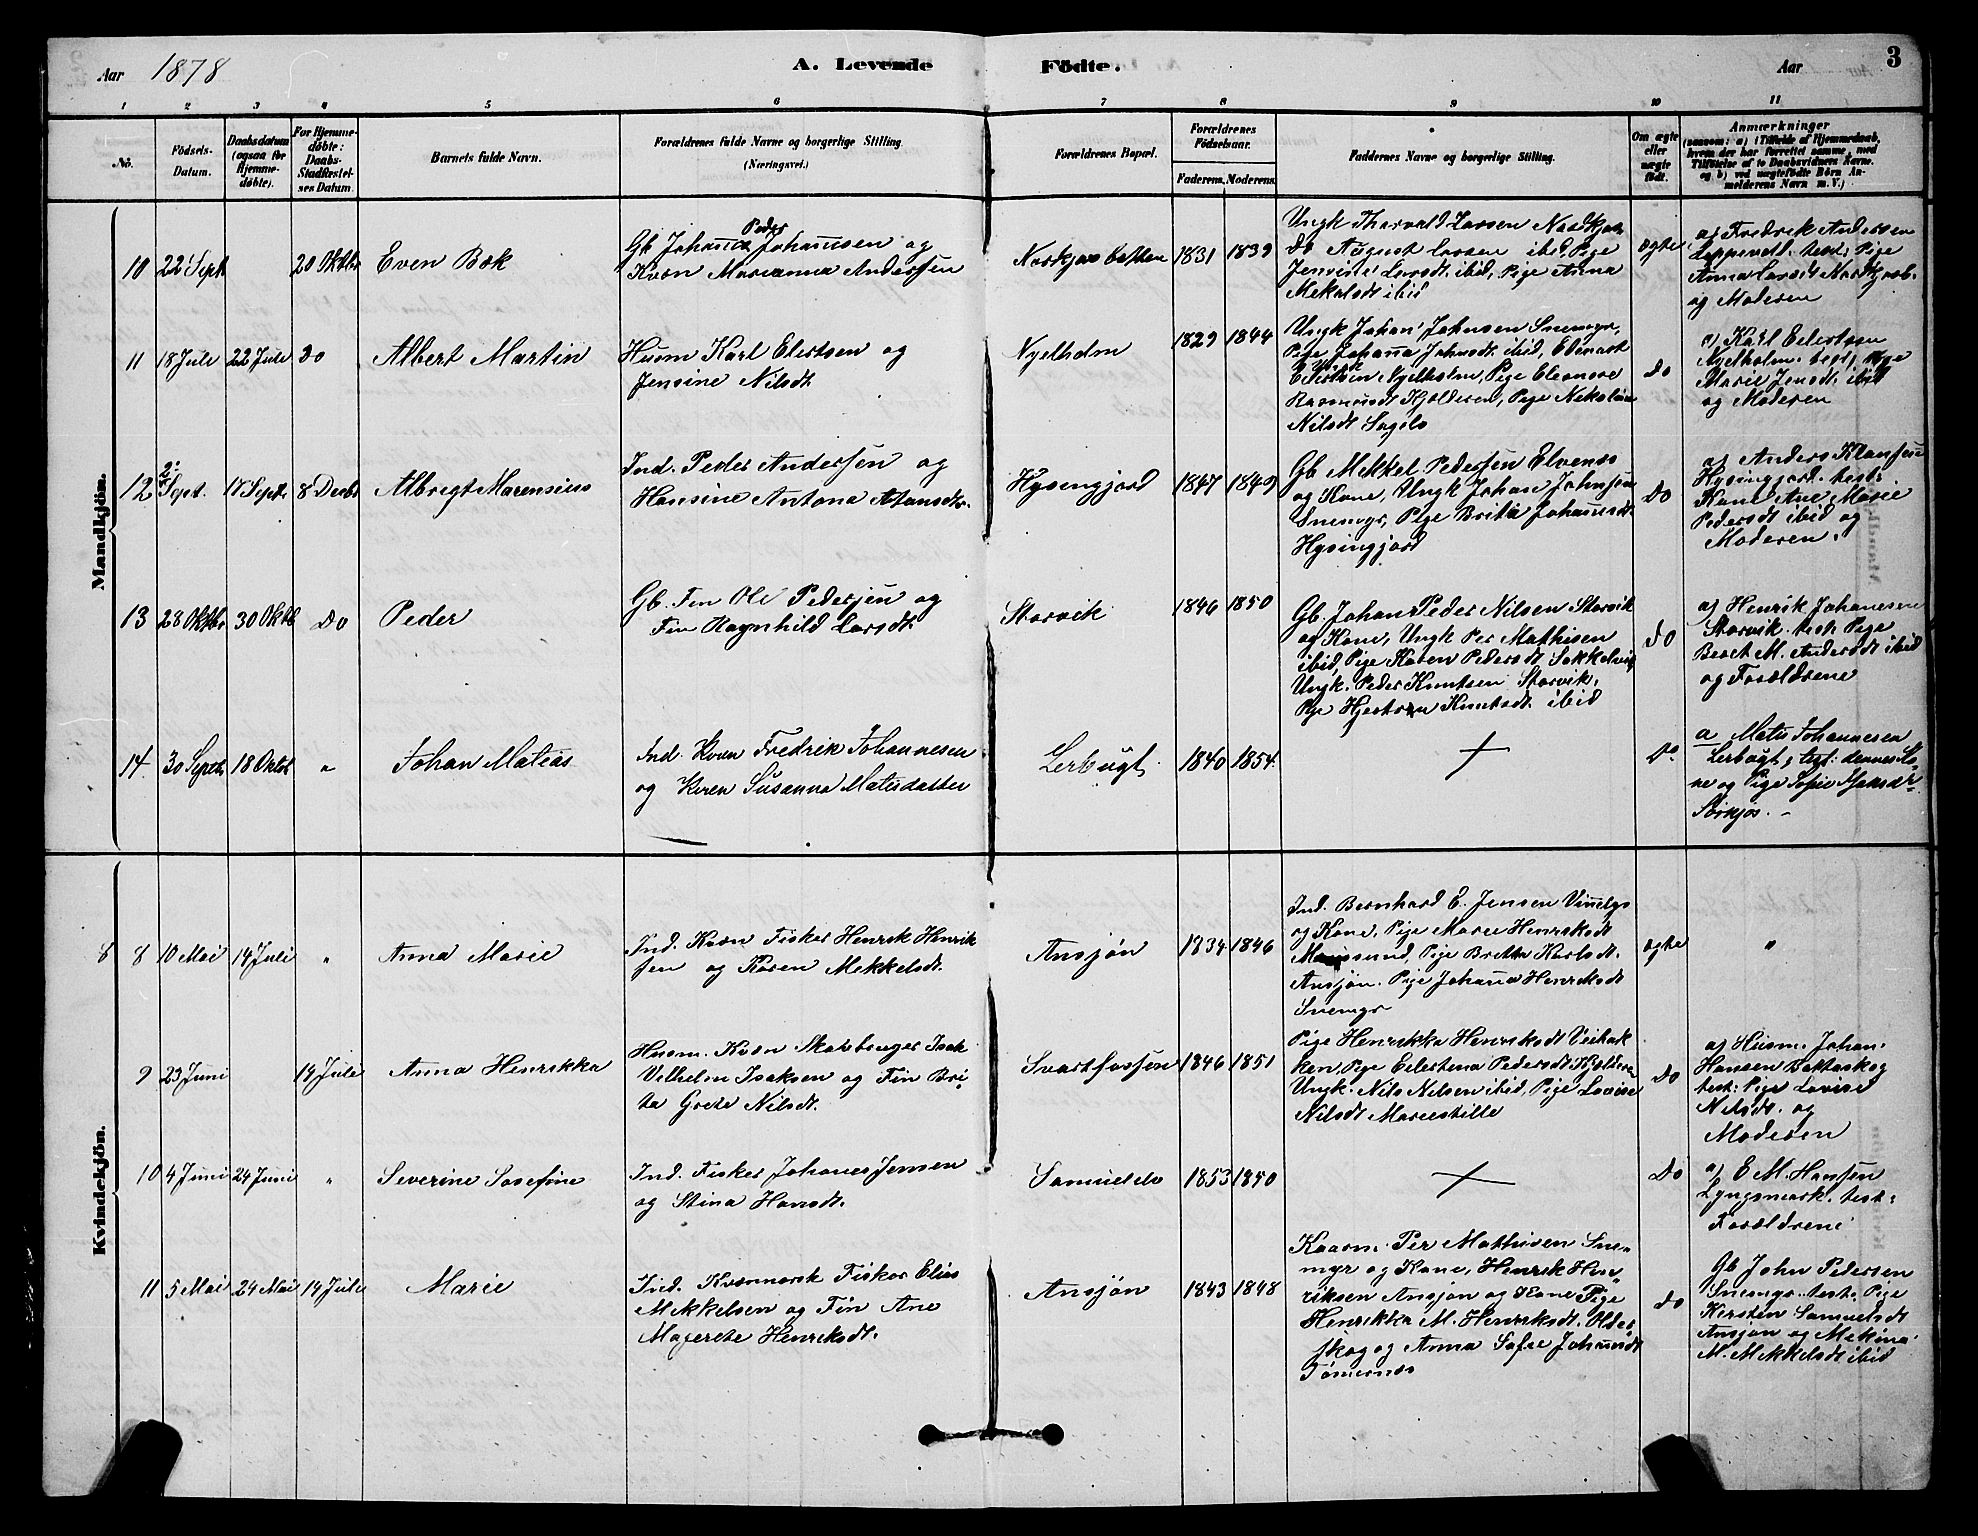 Aar 1878
A. Levende Födte.
Aar
3
1 2 3 4 5 6 7 8 9 10 11
No.
Födsels-Datum.
Daabsdatum (ogsaa for Hjemme-döbte).
For Hjemme-döbte: Daabs-Stadfæstel-ses Datum.
Barnets fulde Navn.
Forældrenes fulde Navne og borgerlige Stilling (Næringsvei.)
Forældrenes Bopæl.
Forældrenes Födselsaar.
Faderens. Moderens.
Faddernes Navne og borgerlige Stilling.
Om ægte eller uægte födt.
Anmærkninger
(saasom: a) i Tilfælde af Hjemmedaab, hvem der har forrettet samme, med Tilföielse af to Daabsvidners Navne. og b) ved uægtefödte Börn An-melderens Navn m. V.)
Mandkjön.
10 22 Sept 20 Oktbr Even Bæk
Gb Johan Peder Johannsen og
Kvæn Marianna Andersen
1831 1839
Ungk Tharvald Larsen
Do August Larsen ibid, Pige
Jensine Larsdt. ibid, Pige Anna
Mekelsdt ibid
ægte
a) Fredrik Andersen
test: Pige
Anna Larsdt
og Moderen
11 18 Jule 22 Jule Do Albert Martin
Husm Karl Elertsen og
Jensine Nilsdt.
Nyelholm
1829 1844
Ungk Johan Johnsen Snemyr,
Pige Johana Johnsdt. ibid, Edevart
Eilertsen Nyelholm, Pige Eleonore
Rasmusdt Kjoldesen, Pige Nekoline
Nilsdt Sagelo
Do
a) Karl Eilertsen
Nyelholm. test: Pige
Marie Jensdt. ibid
og Moderen
12 2. Sept. 18 Septr 8 Decbr Albregt Marensius
Ind. Peder Andersen og
Hansine Antona Hansdtr.
Hysingjord
1847 1849
Gb Mekkel Pedersen Elvenes
og Kone, Ungk Johan Johnsen
Snemyr, Pige Brita Johannsdt.
Hysingjord
Do
a) Anders Klausen
Hysingjord. test:
Kone Ane Marie
Pedersdt ibid og
Moderen.
13 28 Oktbr 30 Oktb Do Peder
Gb. Fin Ole Pedersen og
Fin Ragnhild Larsdt.
Storvik
1846 1850
Gb. Johan Peder Nilsen Storvik
og Kone, Ungk Per Mathisen
ibid, Pige Karen Pedersdt Sokkelvig
Ungk. Peder Knutsen Storvik,
Pige Hjertsen Knutsdt. ibid
Do
a) Henrik Johanesen
Storvik. test: Pige
Beret M. Andersdt ibid
og Forældrene
14 30 Septr 18 Oktbr " Johan Matias
Ind. Kvæn Fredrik Johannesen
og Kvæn Susanna Matisdatter
Lerbugt.
1840 1854.
Do
a Matis Johannesen
Lerbugt; test: dennes Ko-
ne og Pige Sofie Hansdtr
Sørkjos. -
Kvindekjön.
8 8 10 Mai 14 Juli " Anna Marie
Ind. Kvæn Fisker Henrik Henrik
sen og Karen Mekkelsdt.
Ansjøn
1834 1846
Ind. Bernhard E. Jensen
og Kone, Pige Marie Henriksdt
Maursund, Pige Brita Karlsdt.
Ansjøn. Pige Johana Henriksdt
Snemyr
ægte
"
9 23 Juni 14 Jule Anna Henrikka
Husm. Kvæn Isak
Vilhelm Isaksen og Fin Bri-
ta Grete Nilsdt.
Svartfossen
1846 1851
Pige Henrikka Henriksdt
Pige Eilestena Pedersdt Kjoldesen
Ungk. Nils Nilsen ibid, Pige Lovise
Nilsdt Mareestille
Do
a) Husm. Johan
Hansen Battaskog
test: Pige Lovise
Nilsdt. og
Moderen
10 4 Juni 24 Juni " Severine Josefine
Ind. Fisker Johanes Jensen
og Stina Hansdt.
Samuelde
1853 1850
Do
a) E. M. Hansen
Lyngsmark. test:
Forældrene
11 5 Mai 24 Mai 14 Jule Marie
Ind. Kvænnorsk Fisker Elias
Mekkelsen og Fin Ane
Magrete Henriksdt.
Ansjøn
1843 1848
Kaarm. Per Mathisen Sne-
myr og Kone, Henrik Hen-
riksen Ansjøn og Kone Pige
Henrikka M. Henriksdt. Older-
skog og Anna Sofie Johansdt
Tømernes
Do
Gb John Pedersen
Snemyr. test: Pige
Kirsten Samuelsdt
Ansjøn og Mekina
M. Mekkelsdt ibid